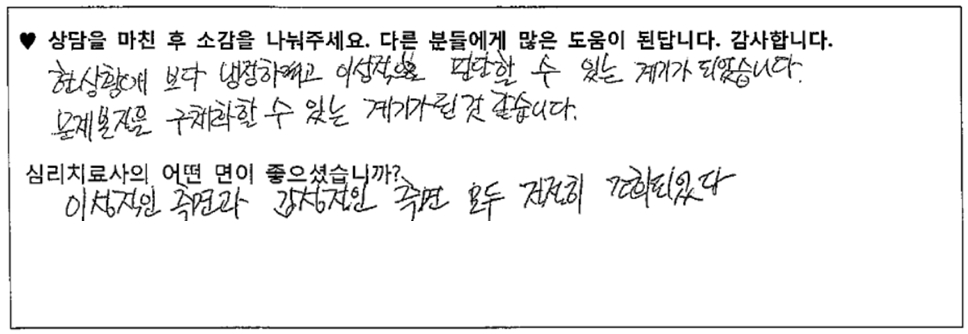 ♥ 상담을 마친 후 소감을 나눠주세요. 다른 분들에게 많은 도움이 된답니다. 감사합니다.
현상황에 보다 냉정하게고 이성적으로 판단할 수 있는 계기가 되었습니다.
문제본질을 구체화할 수 있는 계기가 된 것 같습니다.
심리치료사의 어떤 면이 좋으셨습니까?
이성적인 측면과 감성적인 측면 모두 적절히 되었다